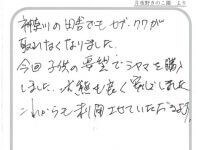 月夜野きのこ園 より
神奈川の田舎でもカブ・クワが
取れなくなりました。
今回子供の要望でシマを購入
しました。状態も良く安心しました
これからも利用させていただきます。